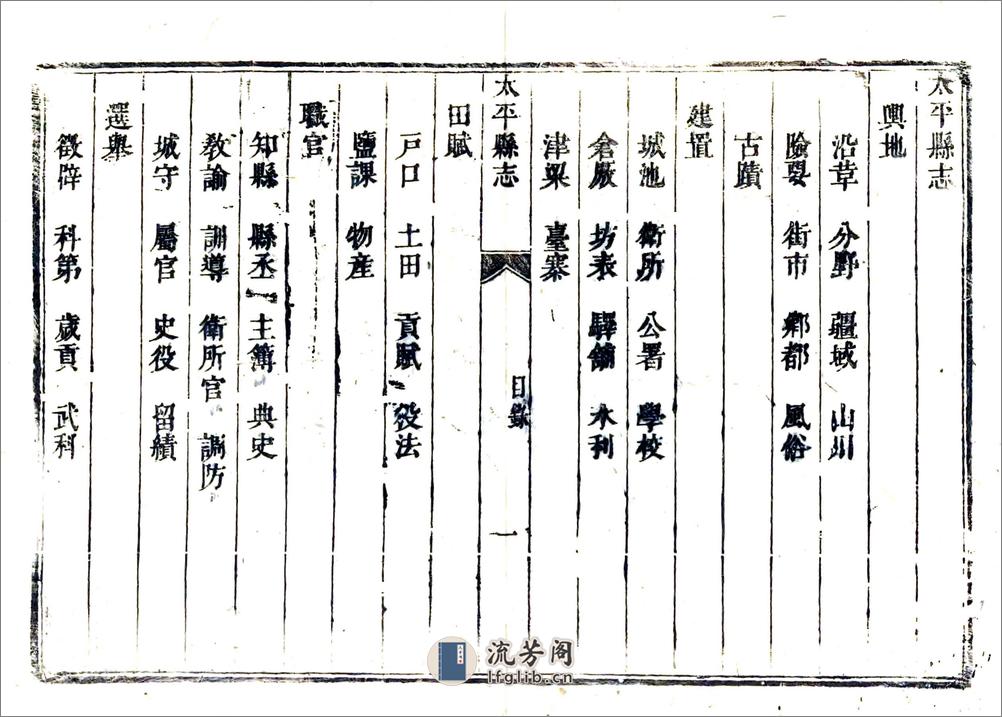 太平縣志
輿地
沿革 分野 疆域 山川
險要 街市 鄉都 風俗
古蹟
建置
城池 衛所 公署 學校
倉厫 坊表 驛鋪 水利
津梁 臺寨
太平縣志 目錄 一
田賦
戸口 土田 貢賦 役法
鹽課 物産
職官
知縣 縣丞 主簿 典史
教諭 訓導 衛所官 調防
城守 屬官 史役 留績
選舉
徵辟 科第 歲貢 武科
流芳阁
lfglib.cn